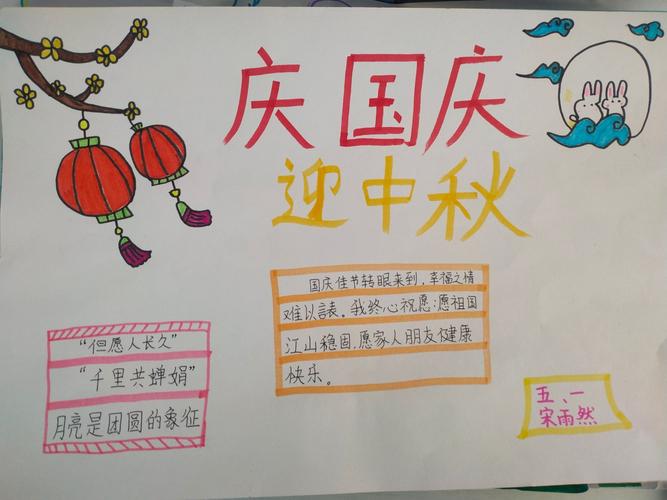 庆国庆
迎中秋
国庆佳节转眼来到,幸福之情
难以言表。我终心祝愿:愿祖国
江山稳固,愿家人朋友健康
快乐。
“但愿人长久”
“千里共蝉娟”
月亮是团圆的象征
五、一
宋雨然